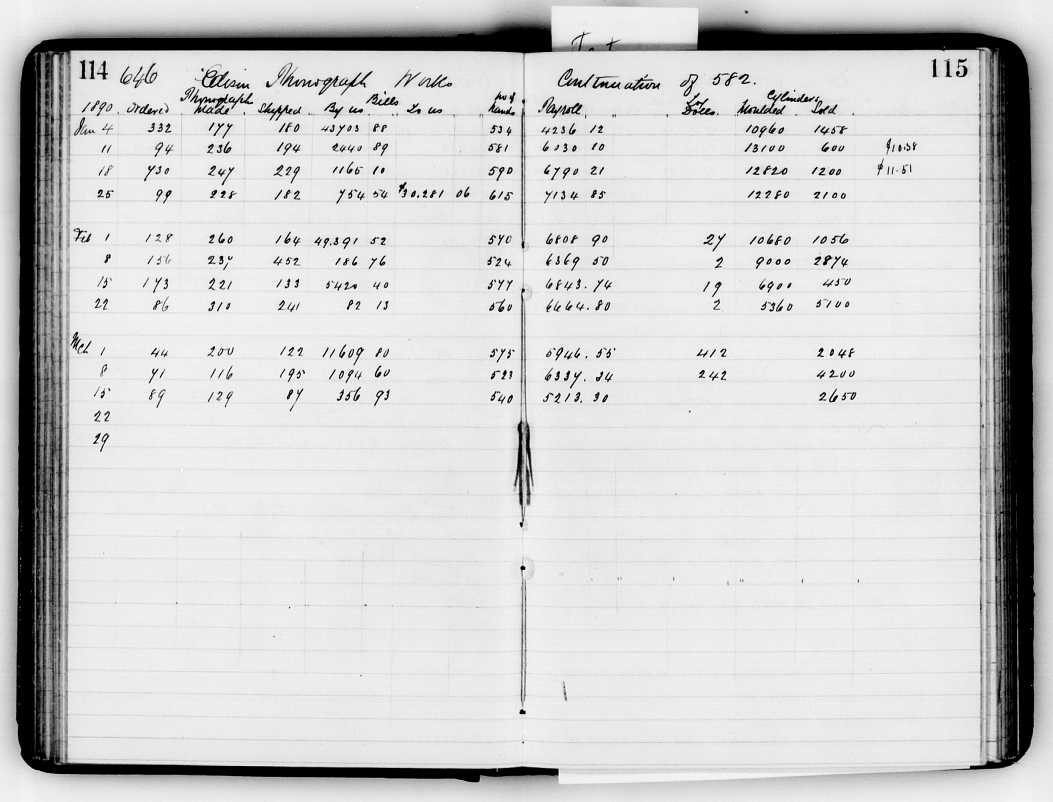 114 646 Edison Phonograph Works Continuation of 582. 115
1890 Ordered Phonographs Made Shipped Bills By us To us no of hands Payroll Dolls Cylinders Moulded Sold
Jan 4 332 177 180 43703 88 534 4236 12 10960 1458
11 94 236 194 2440 89 581 6030 10 13100 600 $10.38
18 730 247 229 1165 10 590 6790 21 12820 1200 $11.51
25 99 228 182 754 54 $30.281 06 615 7134 85 12280 2100
Feb 1 128 260 164 49.391 52 570 6808 90 27 10680 1056
8 156 237 452 186 76 524 6369 50 2 9000 2874
15 173 221 133 5420 40 577 6843.74 19 6900 450
22 86 310 241 82 13 560 6664.80 2 5360 5100
Mch 1 44 200 122 11609 80 575 5946.55 412 2048
8 71 116 195 1094 60 523 6337.34 242 4200
15 89 129 87 356 93 540 5213.30 2650
22
29